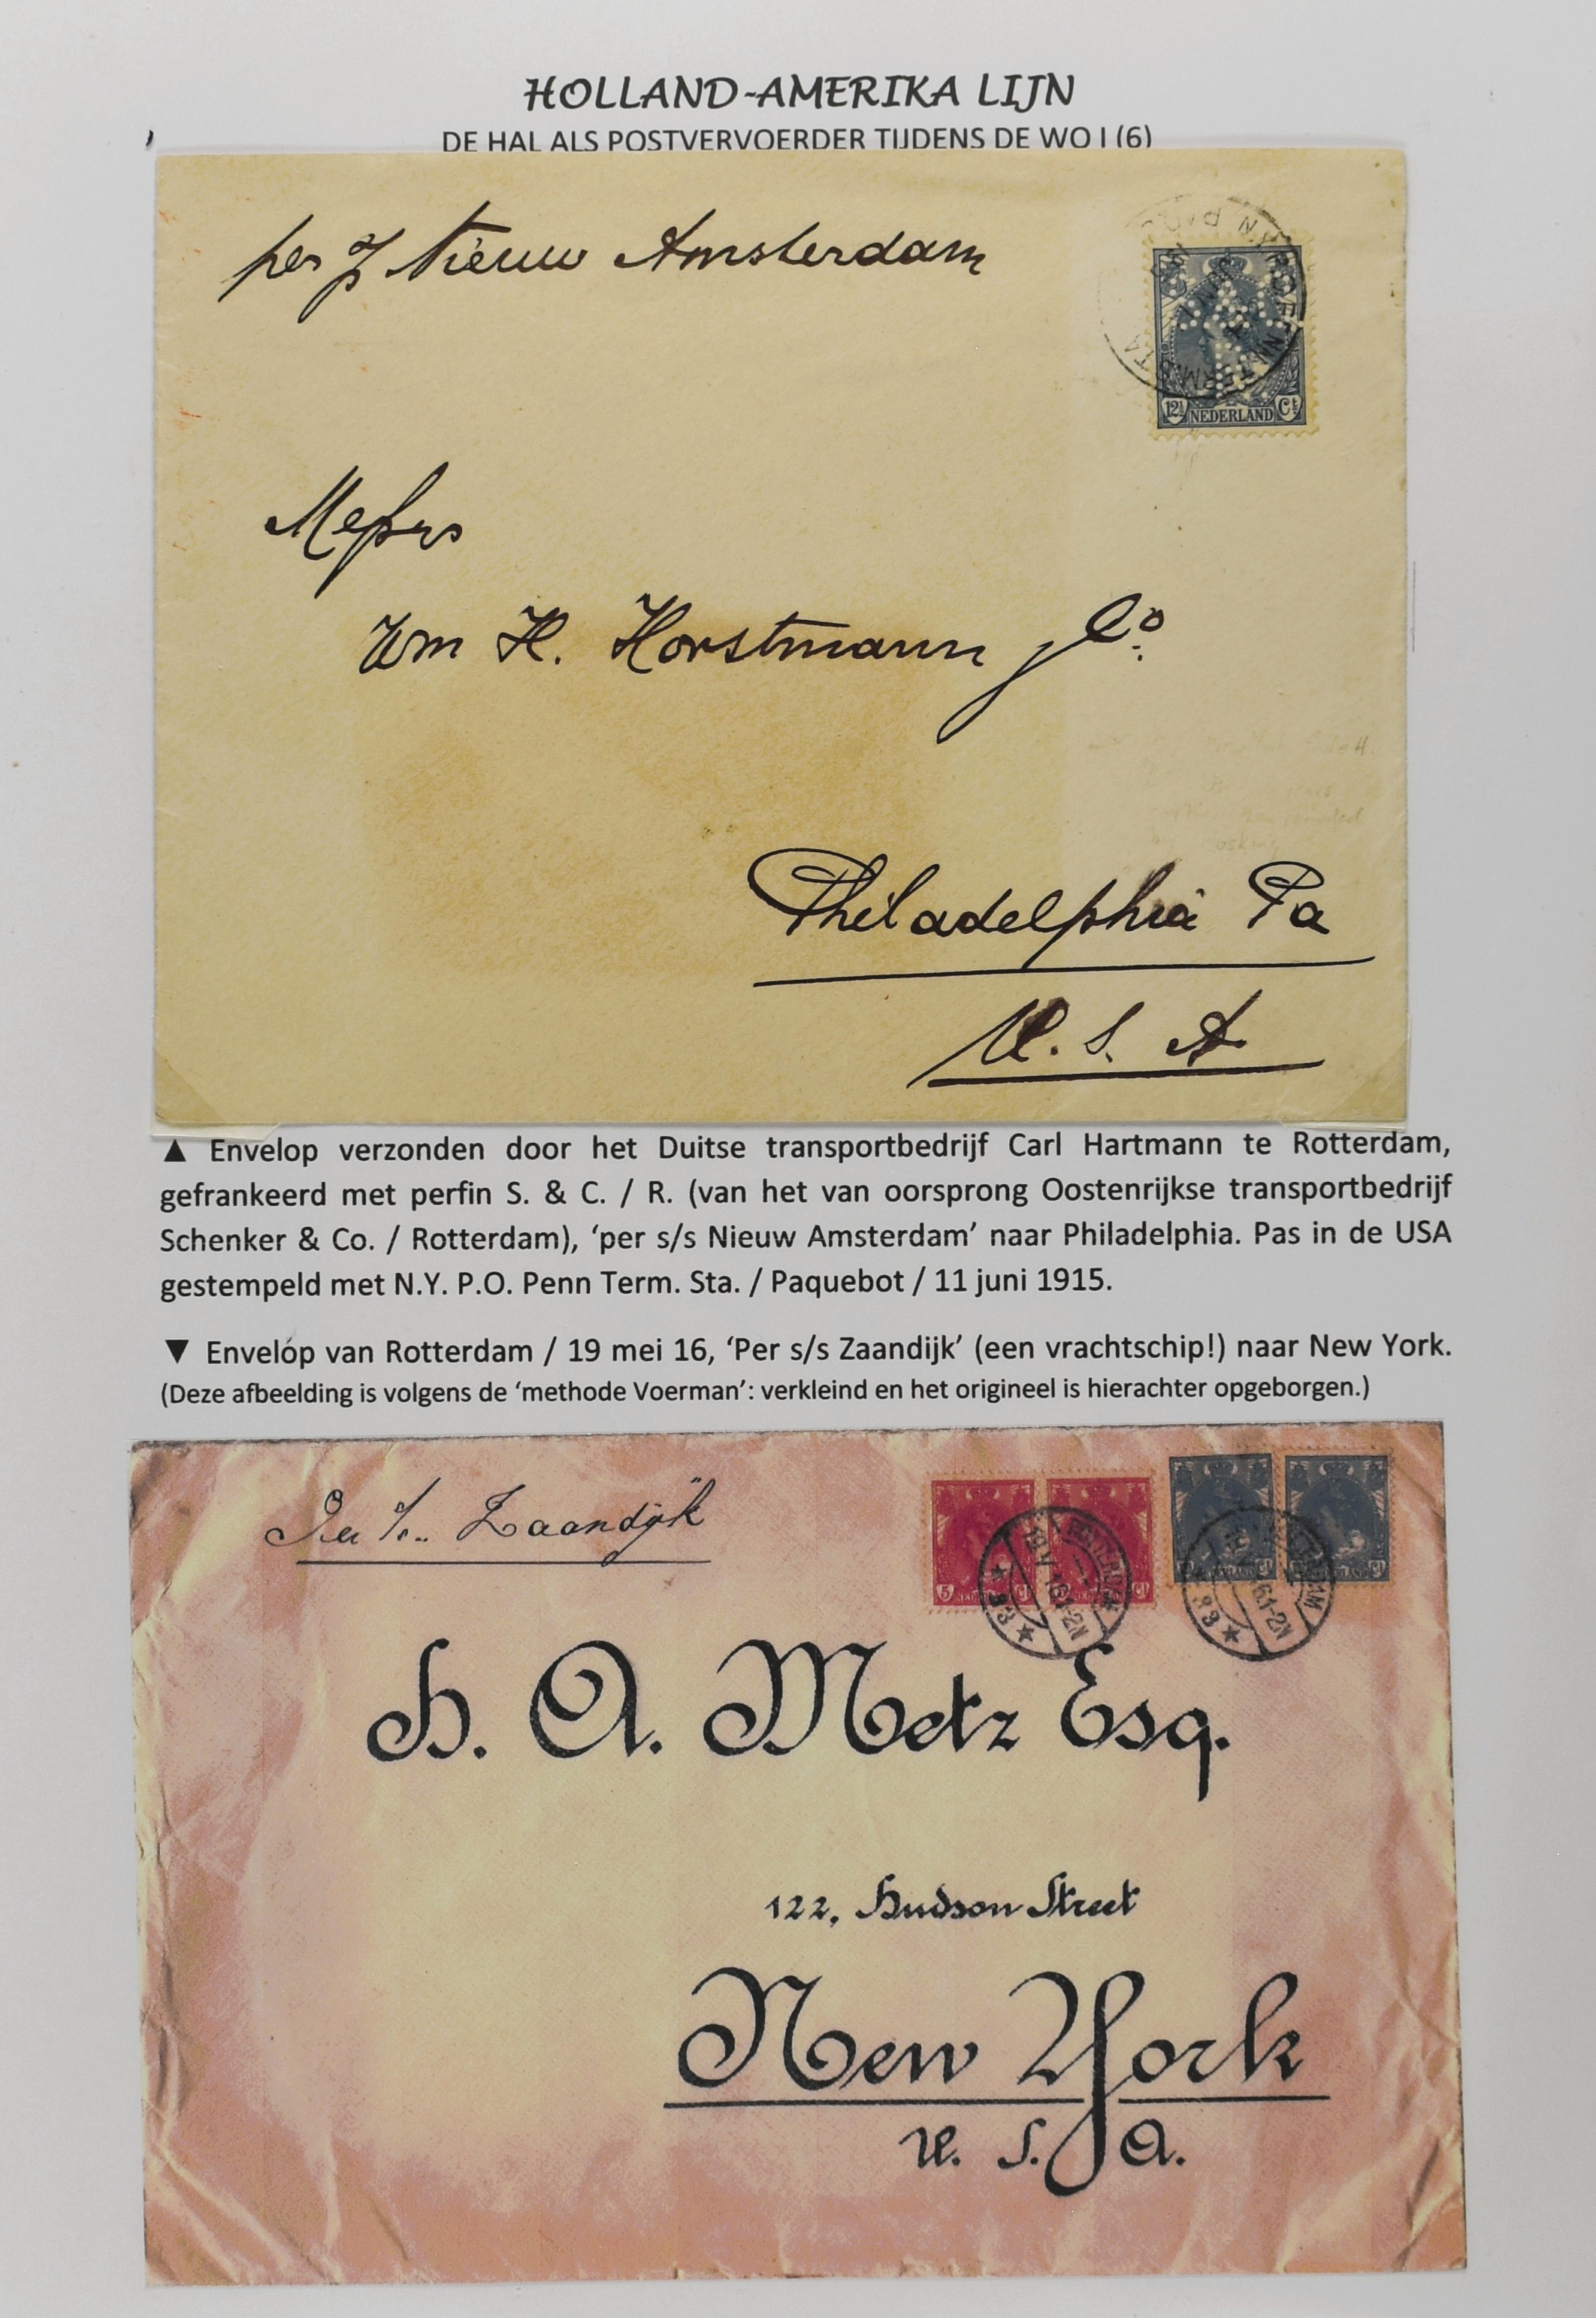 HOLLAND-AMERIKA LIJN
DE HAL ALS POSTVERVOERDER TIJDENS DE WO I (6)
per s/s Nieuw Amsterdam
12½ NEDERLAND Ct
Messrs
Wm H. Horstmann & Co.
Philadelphia Pa
U. S. A
▲ Envelop verzonden door het Duitse transportbedrijf Carl Hartmann te Rotterdam,
gefrankeerd met perfin S. & C. / R. (van het van oorsprong Oostenrijkse transportbedrijf
Schenker & Co. / Rotterdam), ‘per s/s Nieuw Amsterdam’ naar Philadelphia. Pas in de USA
gestempeld met N.Y. P.O. Penn Term. Sta. / Paquebot / 11 juni 1915.
▼ Envelóp van Rotterdam / 19 mei 16, ‘Per s/s Zaandijk’ (een vrachtschip!) naar New York.
(Deze afbeelding is volgens de ‘methode Voerman’: verkleind en het origineel is hierachter opgeborgen.)
Per s/s. Zaandijk
ROTTERDAM
19 V 16 1-2N
★ 83 ★
H. A. Metz Esq.
122, Hudson Street
New York
U. S. A.